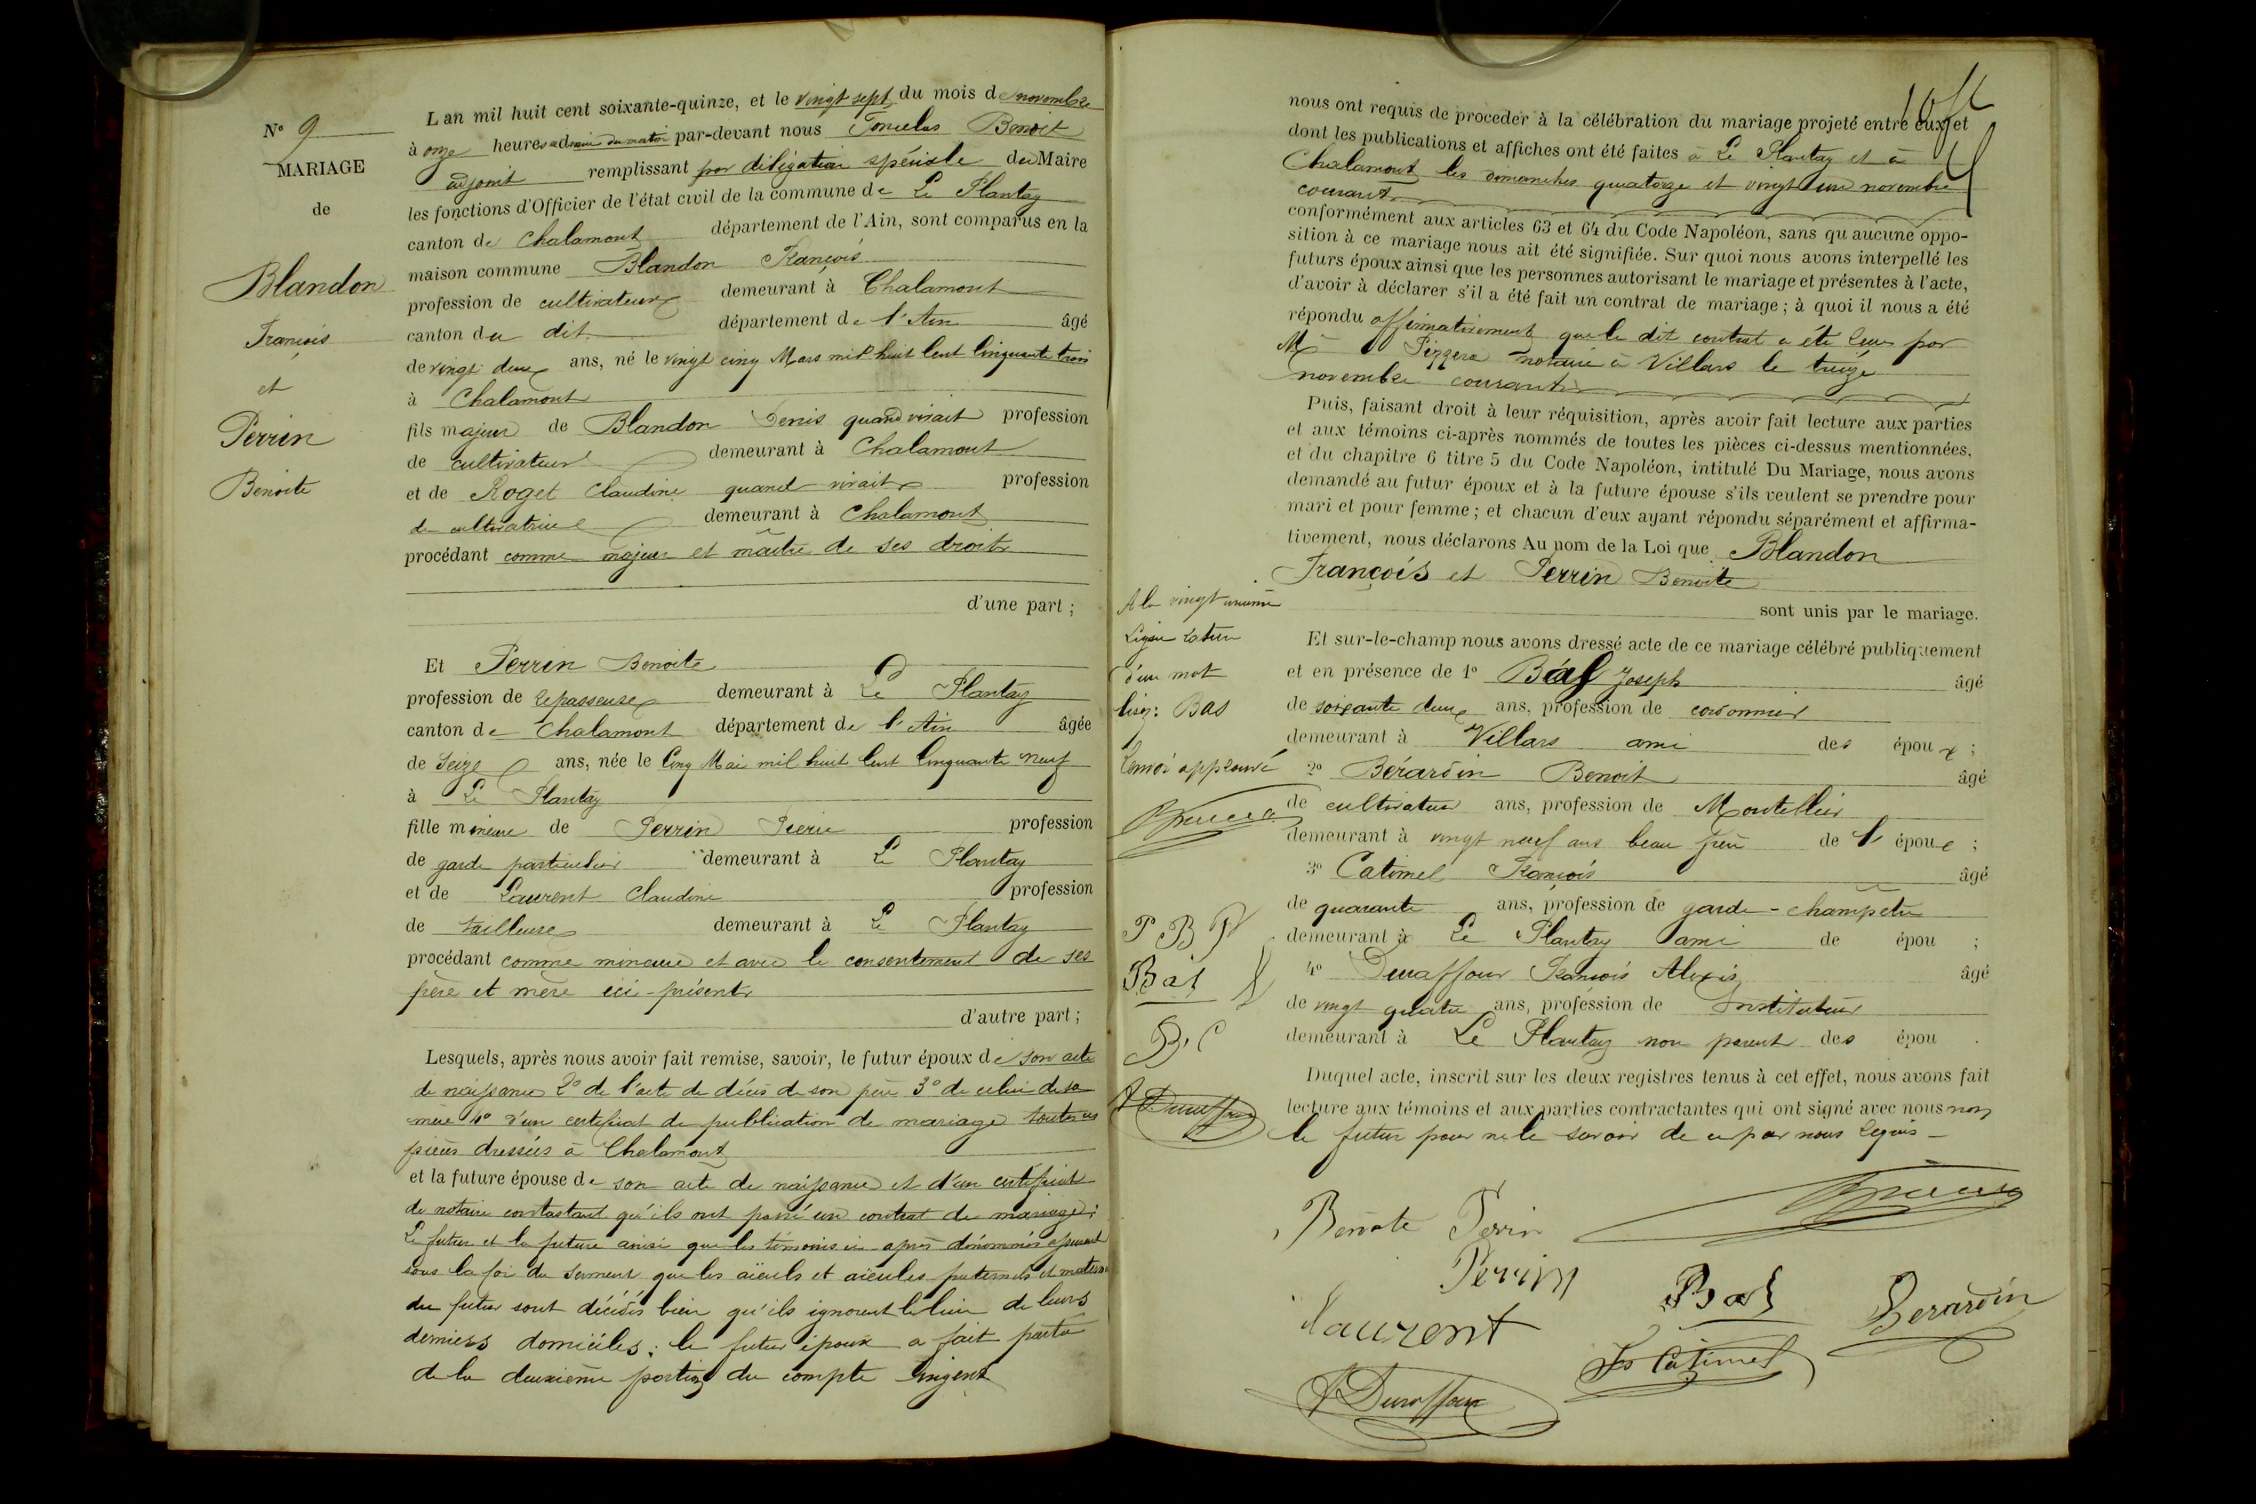 Nº 9
MARIAGE
de
Blandon
François
et
Perrin
Benoite
L'an mil huit cent soixante-quinze, et le vingt sept du mois de novembre
à onze heures du matin par-devant nous Benoit
adjoint remplissant par délégation spéciale du Maire
les fonctions d'Officier de l'état civil de la commune de Le Plantay
canton de Chalamont département de l'Ain, sont comparus en la
maison commune Blandon François
profession de cultivateur demeurant à Chalamont
canton du dit département de l'Ain âgé
de vingt deux ans, né le vingt cinq Mars mil huit Cent Cinquante trois
à Chalamont
fils majeur de Blandon Denis quand vivait profession
de cultivateur demeurant à Chalamont
et de Roget Claudine quand vivait profession
de cultivatrice demeurant à Chalamont
procédant comme majeur et maître de ses droits
d'une part ;
Et Perrin Benoite
profession de repasseuse demeurant à Le Plantay
canton de Chalamont département de l'Ain âgée
de Seize ans, née le Cinq Mai mil huit Cent Cinquante neuf
à Le Plantay
fille mineure de Perrin Pierre profession
de garde particulier demeurant à Le Plantay
et de Laurent Claudine profession
de tailleuse demeurant à Le Plantay
procédant comme mineure et avec le consentement de ses
père et mère ici-présents
d'autre part ;
Lesquels, après nous avoir fait remise, savoir, le futur époux de son acte
de naissance 2º de l'acte de décès de son père 3º de celui de sa
mère 4º d'un certificat de publication de mariage toutes ces
pièces dressées à Chalamont
et la future épouse de son acte de naissance et d'un certificat
de notaire constatant qu'ils ont passé un contrat de mariage;
Le futur et la future ainsi que les témoins ci-après dénommés assurent
sous la foi du serment que les aïeuls et aïeules paternels et maternels
du futur sont décédés bien qu'ils ignorent le lieu de leurs
derniers domiciles; le futur époux a fait partie
de la deuxième portion du
nous ont requis de procéder à la célébration du mariage projeté entre eux, et
dont les publications et affiches ont été faites à Le Plantay et à
Chalamont les dimanches quatorze et vingt un novembre
courant.
conformément aux articles 63 et 64 du Code Napoléon, sans qu'aucune oppo-
sition à ce mariage nous ait été signifiée. Sur quoi nous avons interpellé les
futurs époux ainsi que les personnes autorisant le mariage et présentes à l'acte,
d'avoir à déclarer s'il a été fait un contrat de mariage ; à quoi il nous a été
répondu affirmativement que le dit contrat a été par
Me notaire à Villars le treize
novembre courant
Puis, faisant droit à leur réquisition, après avoir fait lecture aux parties
et aux témoins ci-après nommés de toutes les pièces ci-dessus mentionnées,
et du chapitre 6 titre 5 du Code Napoléon, intitulé Du Mariage, nous avons
demandé au futur époux et à la future épouse s'ils veulent se prendre pour
mari et pour femme ; et chacun d'eux ayant répondu séparément et affirma-
tivement, nous déclarons Au nom de la Loi que Blandon
François et Perrin Benoite
sont unis par le mariage.
A la vingt unième
Ligne rature
d'un mot
lisez: Bas
Renvoi approuvé
Et sur-le-champ nous avons dressé acte de ce mariage célébré publiquement
et en présence de 1º Bas Joseph âgé
de soixante deux ans, profession de cordonnier
demeurant à Villars ami des époux ;
2º Bérardin Benoit âgé
de cultivateur ans, profession de Montellier
demeurant à vingt neuf ans beau frère de l' épouse ;
3º Catimel François âgé
de quarante ans, profession de garde-champêtre
demeurant à Le Plantay ami de épou ;
4º Duraffour François Alexis âgé
de vingt quatre ans, profession de Instituteur
demeurant à Le Plantay non parent des épou .
Duquel acte, inscrit sur les deux registres tenus à cet effet, nous avons fait
lecture aux témoins et aux parties contractantes qui ont signé avec nous non
le futur pour ne le savoir de ce par nous requis
P B
Bas
B. C
Benoite Perrin
Perrin
Laurent
Bas
Berardin
Catimel
Duraffour